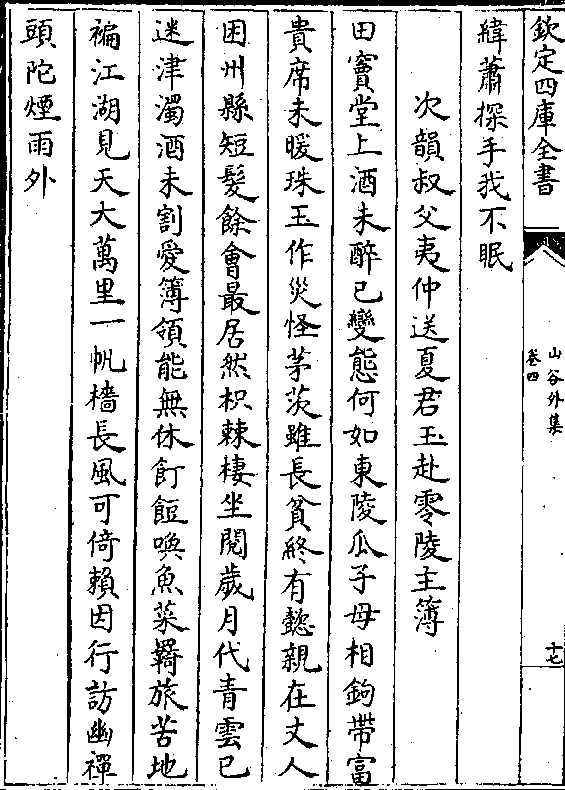 欽定四庫全書
山谷外集
卷四
十七
緯蕭探手我不眠
次韻叔父夷仲送夏君玉赴零陵主簿
田竇堂上酒未醉已變態何如東陵瓜子母相鉤帶富
貴席未暖珠玉作災怪茅茨雖長貧終有懿親在丈人
困州縣短髮餘會最居然枳棘棲坐閱歲月代青雲已
迷津濁酒未割愛簿領能無休飣餖喚魚菜羇旅苦地
褊江湖見天大萬里一帆檣長風可倚賴因行訪幽禪
頭陀煙雨外